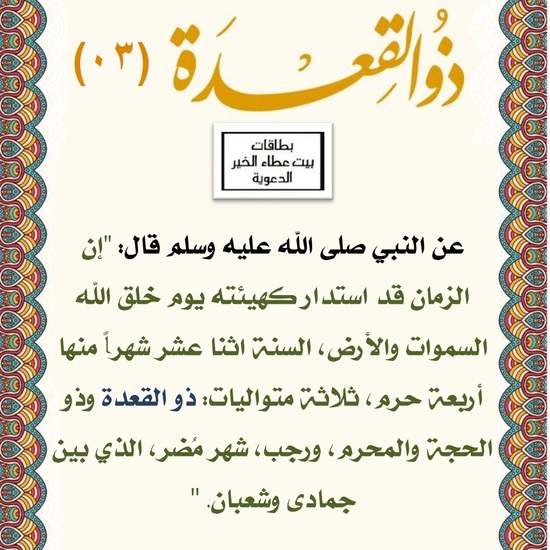 ذو القعدة (٠٣)
بطاقات
بيت عطاء الخير
الدعوية
عن النبي صلى الله عليه وسلم قال: "إن
الزمان قد استدار كهيئته يوم خلق الله
السموات والأرض، السنة اثنا عشر شهراً منها
أربعة حرم، ثلاثة متواليات: ذو القعدة وذو
الحجة والمحرم، ورجب، شهر مُضر، الذي بين
جمادى وشعبان. "